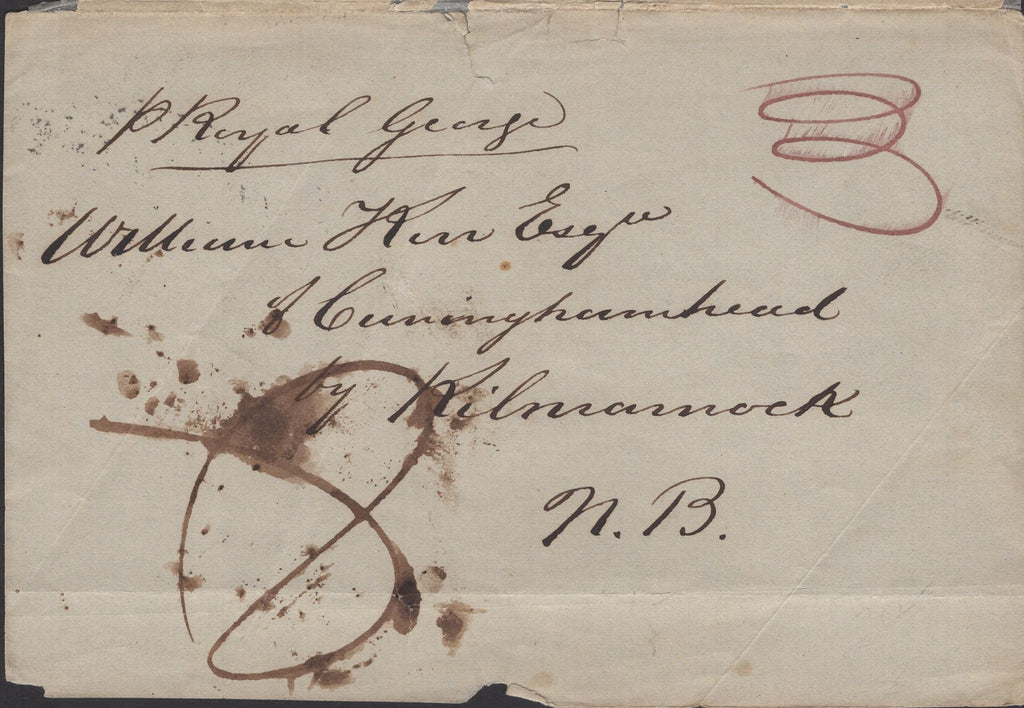 p Royal George
William Kerr Esqre
of Cuninghamhead
by Kilmarnock
N. B.